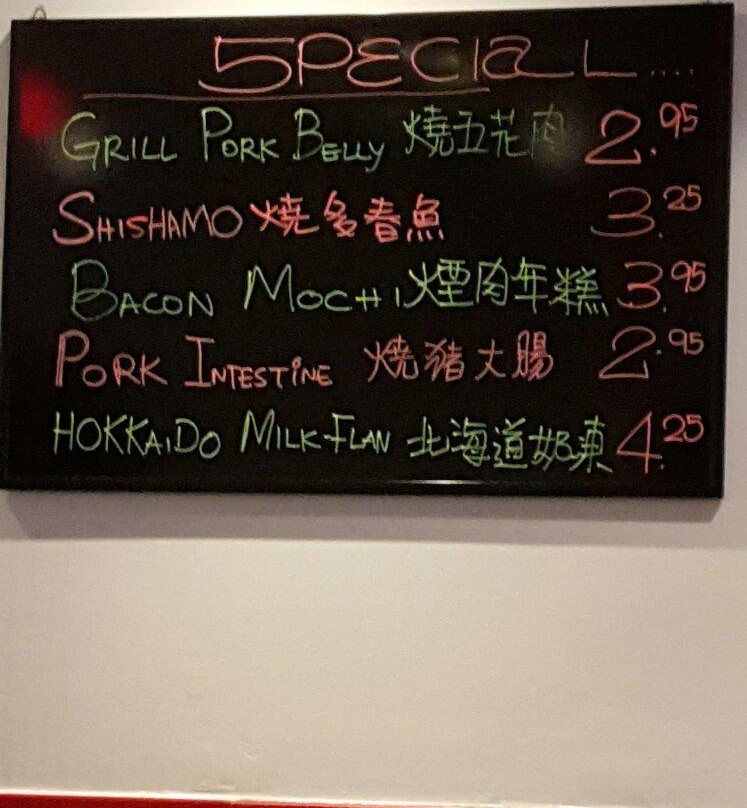 SPECIAL....
GRILL PORK BELLY 燒五花肉 2.95
SHISHAMO 燒多春魚 3.25
BACON MOCHI 煙肉年糕 3.95
PORK INTESTINE 燒豬大腸 2.95
HOKKAIDO MILK FLAN 北海道奶凍 4.25